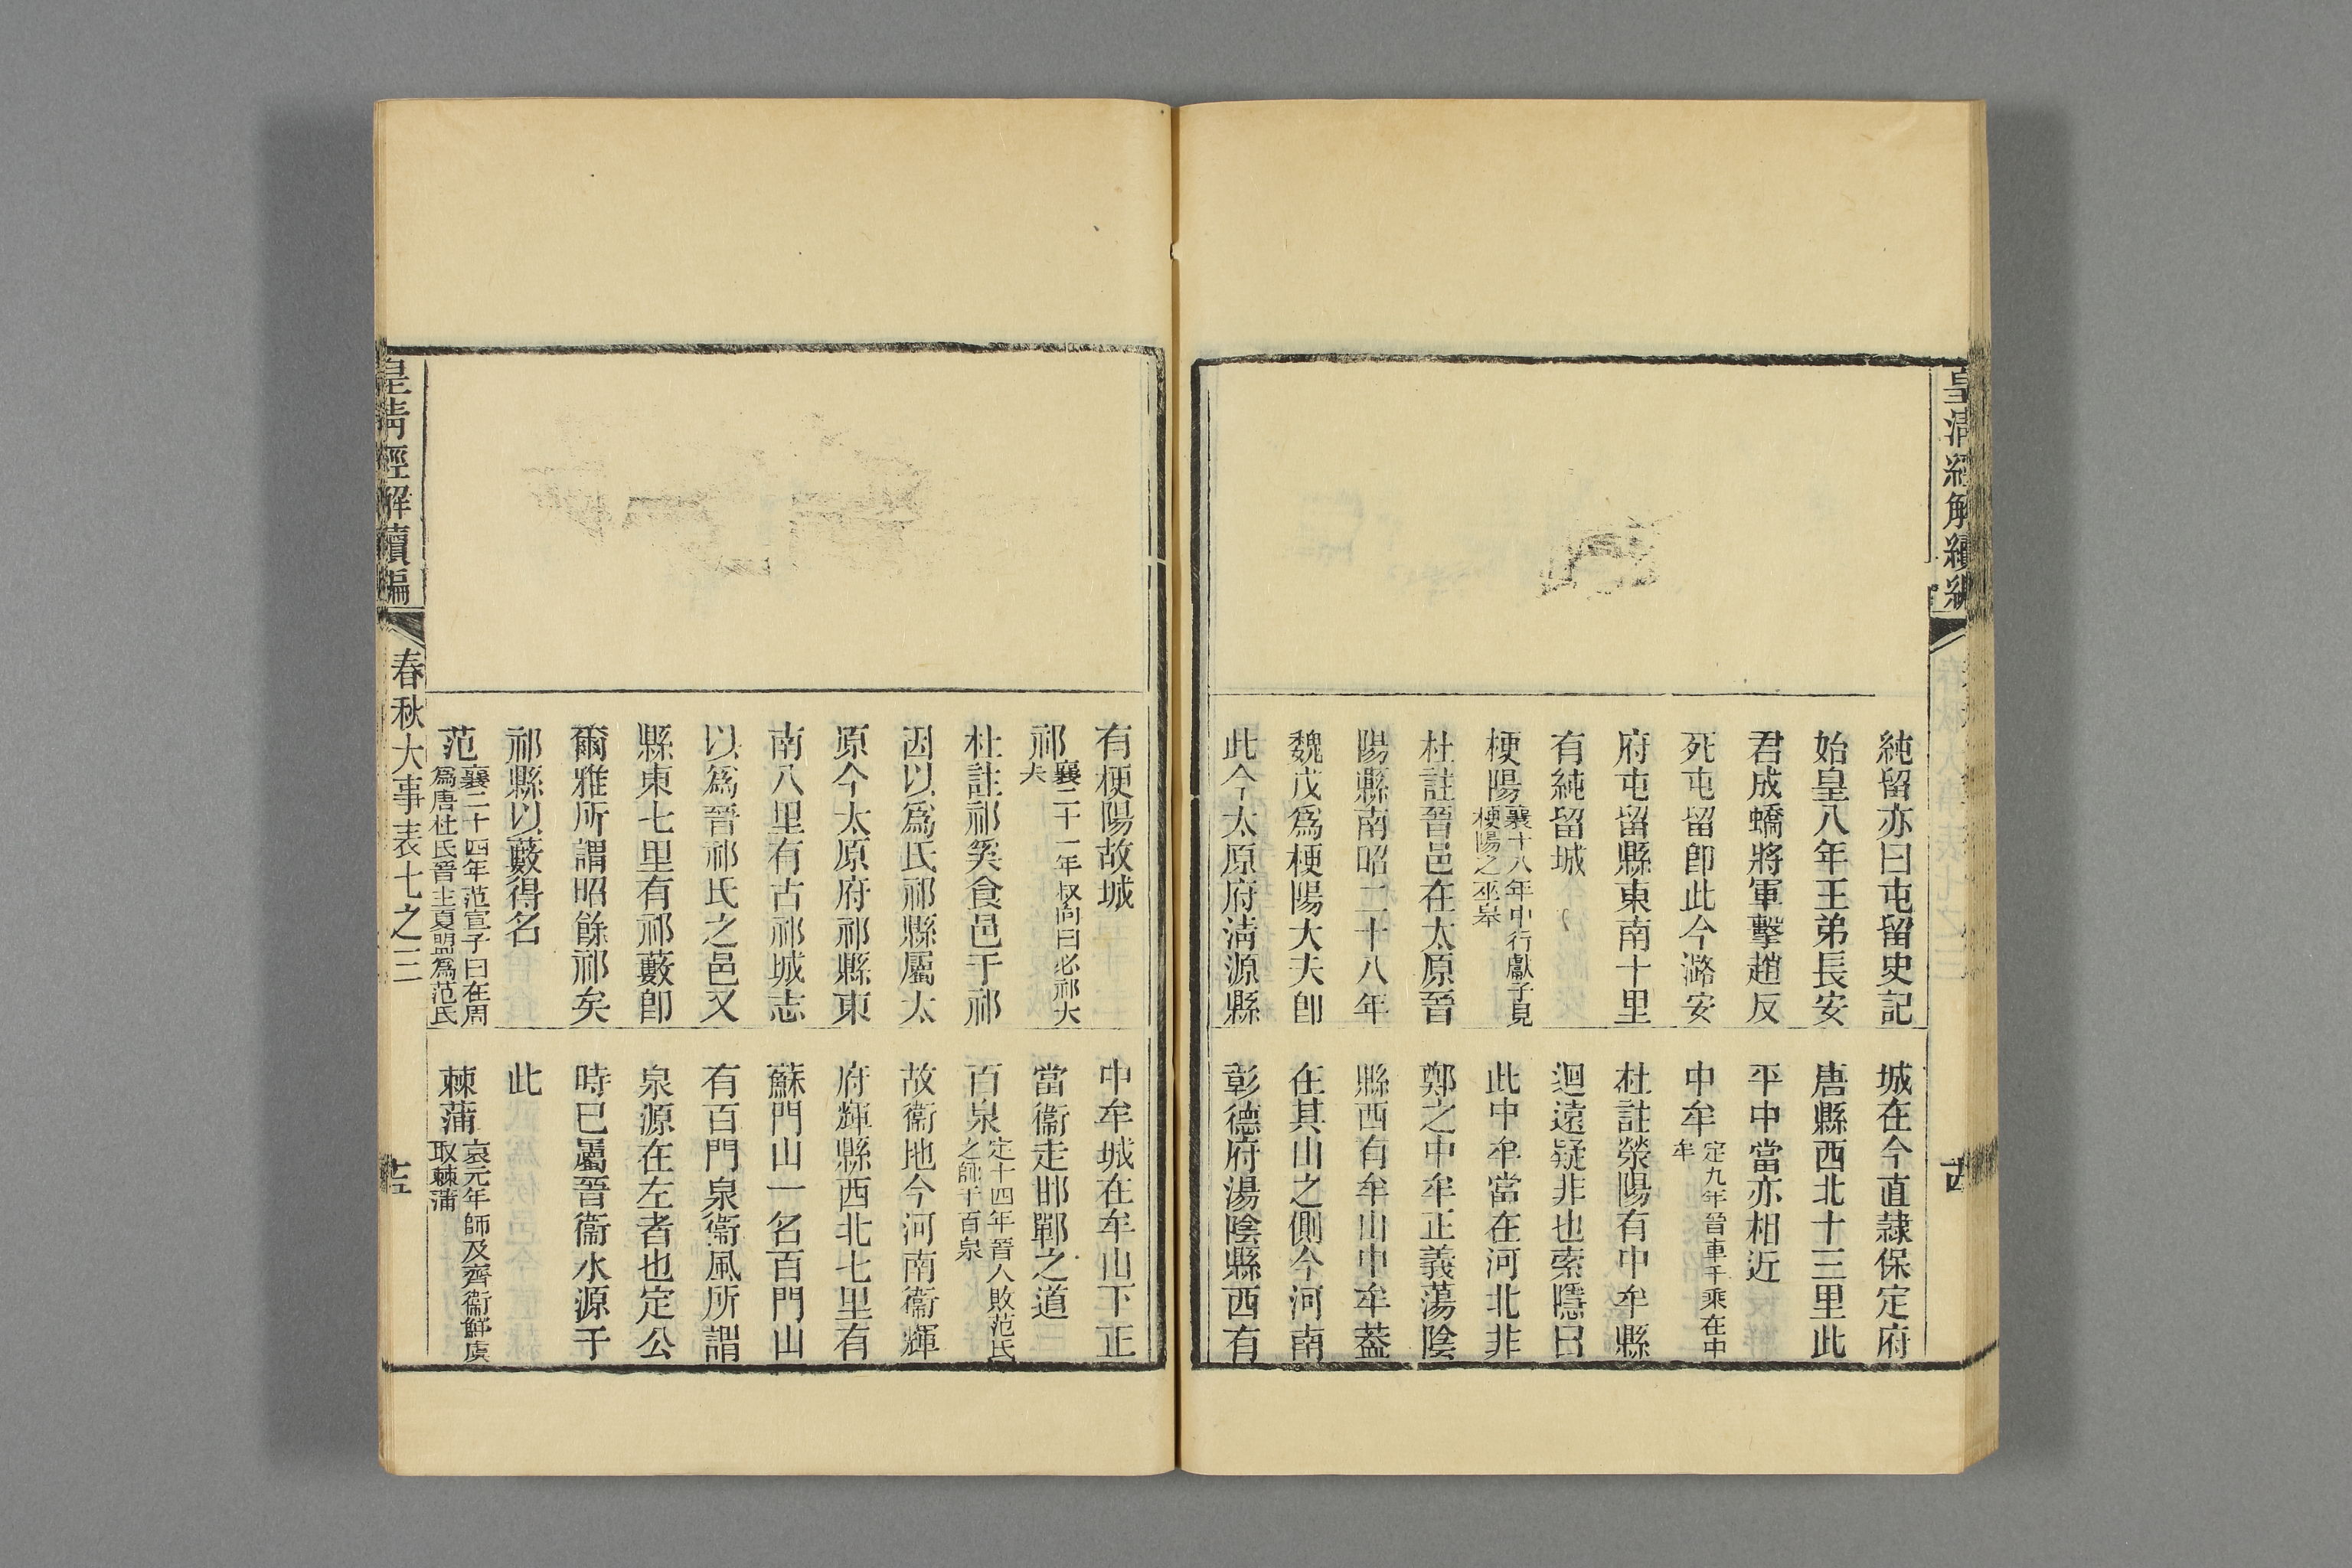 皇清經解續編
純留亦曰屯留史記
始皇八年王弟長安
君成蟜將軍擊趙反
死屯留卽此今潞安
府屯留縣東南十里
有純留城
梗陽襄十八年中行獻子見梗陽之巫皋
杜註晉邑在太原晉
陽縣南昭二十八年
魏戊爲梗陽大夫卽
此今太原府淸源縣
城在今直隷保定府
唐縣西北十三里此
平中當亦相近
中牟定九年晉車千乘在中牟
杜註滎陽有中牟縣
迴遠疑非也索隱曰
此中牟當在河北非
鄭之中牟正義蕩陰
縣西有牟山中牟葢
在其山之側今河南
彰德府湯陰縣西有
有梗陽故城
祁襄二十一年叔向曰必祁大夫
杜註祁奚食邑于祁
因以爲氏祁縣屬太
原今太原府祁縣東
南八里有古祁城志
以爲晉祁氏之邑又
縣東七里有祁藪卽
爾雅所謂昭餘祁矣
祁縣以藪得名
范襄二十四年范宣子曰在周爲唐杜氏晉主夏盟爲范氏
中牟城在牟山下正
當衞走邯鄲之道
百泉定十四年晉人敗范氏之師于百泉
故衞地今河南衞輝
府輝縣西北七里有
蘇門山一名百門山
有百門泉衞風所謂
泉源在左者也定公
時已屬晉衞水源于
此
棘蒲哀元年師及齊衞鮮虞取棘蒲
皇清經解續編
春秋大事表七之三